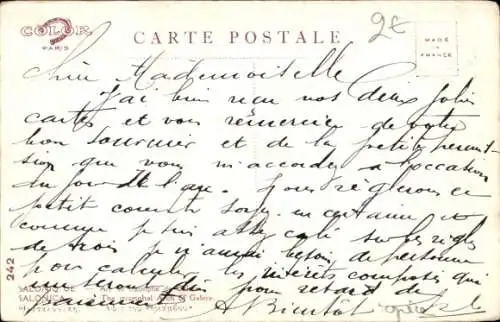 COLOR
PARIS
CARTE POSTALE
2€
MADE
IN
FRANCE
Chère Mademoiselle
J'ai bien reçu vos deux jolies
cartes et vous remercie de votre
bon souvenir et de la petite permis
sion que vous m'accordez à l'occasion
du jour de l'an. Nous règlerons ce
petit compte soyez en certaine et
comme je suis assez calé sur les règles
de trois je n'aurai besoin de personne
pour calculer les intérêts composés qui
seront dûs pour retard de
A Bientôt
242
SALONIQUE
SALONICA
The triumphal Arch of Galere